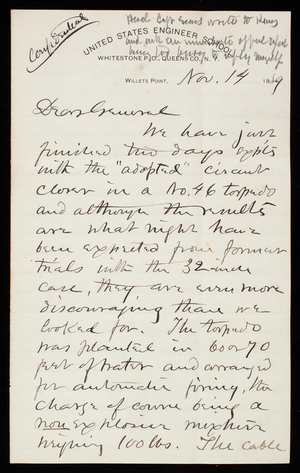 Confidential
UNITED STATES ENGINEER SCHOOL
WHITESTONE P.O., QUEENS CO., N.Y.
WILLETS POINT, Nov. 14 1889
Dear General
We have just
finished two days expts
with the "adopted" circuit
closer in a No. 46 torpedo
and although the results
are what might have
been expected from former
trials with the 32-inch
case, they are even more
discouraging than we
looked for. The torpedo
was planted in 60 or 70
feet of water and arranged
for automatic firing, the
charge of course being a
non explosive mixture
weighing 100 lbs. The cable